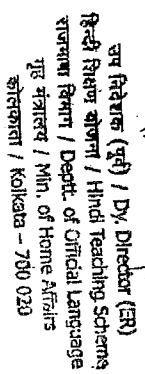 उप निदेशक (पूर्व) / Dy. Director (ER)
हिन्दी शिक्षण योजना / Hindi Teaching Scheme
राजभाषा विभाग / Deptt. of Official Language
गृह मंत्रालय / Min. of Home Affairs
कोलकाता / Kolkata - 700 020